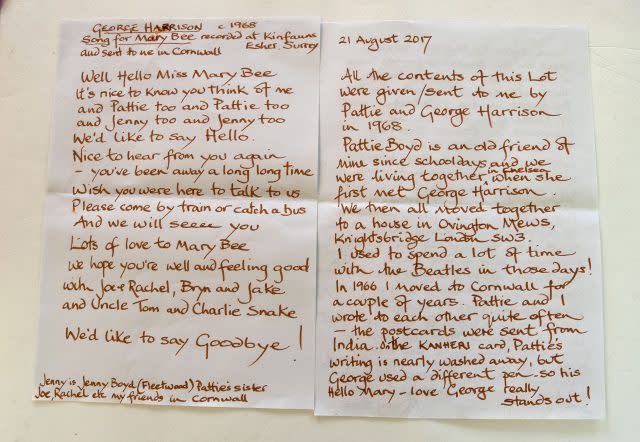 GEORGE HARRISON c 1968
Song for Mary Bee recorded at Kinfauns
Esher Surrey
and sent to me in Cornwall
Well Hello Miss Mary Bee
It's nice to know you think of me
and Pattie too and Pattie too
and Jenny too and Jenny too
We'd like to say Hello.
Nice to hear from you again
- you've been away a long long time
Wish you were here to talk to us
Please come by train or catch a bus
And we will seeee you
Lots of love to Mary Bee
we hope you're well and feeling good
with Joe & Rachel, Bryn and Jake
and Uncle Tom and Charlie Snake
We'd like to say Goodbye !
Jenny is Jenny Boyd (Fleetwood) Pattie's sister
Joe, Rachel etc my friends in Cornwall
21 August 2017
All the contents of this Lot
were given/sent to me by
Pattie and George Harrison
in 1968.
Pattie Boyd is an old friend of
mine since schooldays and we
were living together, in Chelsea when she
first met George Harrison.
We then all moved together
to a house in Ovington Mews,
Knightsbridge London SW3.
I used to spend a lot of time
with the Beatles in those days!
In 1966 I moved to Cornwall for
a couple of years. Pattie and I
wrote to each other quite often
- the postcards were sent from
India. On the KANHERI card, Pattie's
writing is nearly washed away, but
George used a different pen - so his
Hello Mary - love George really
stands out!